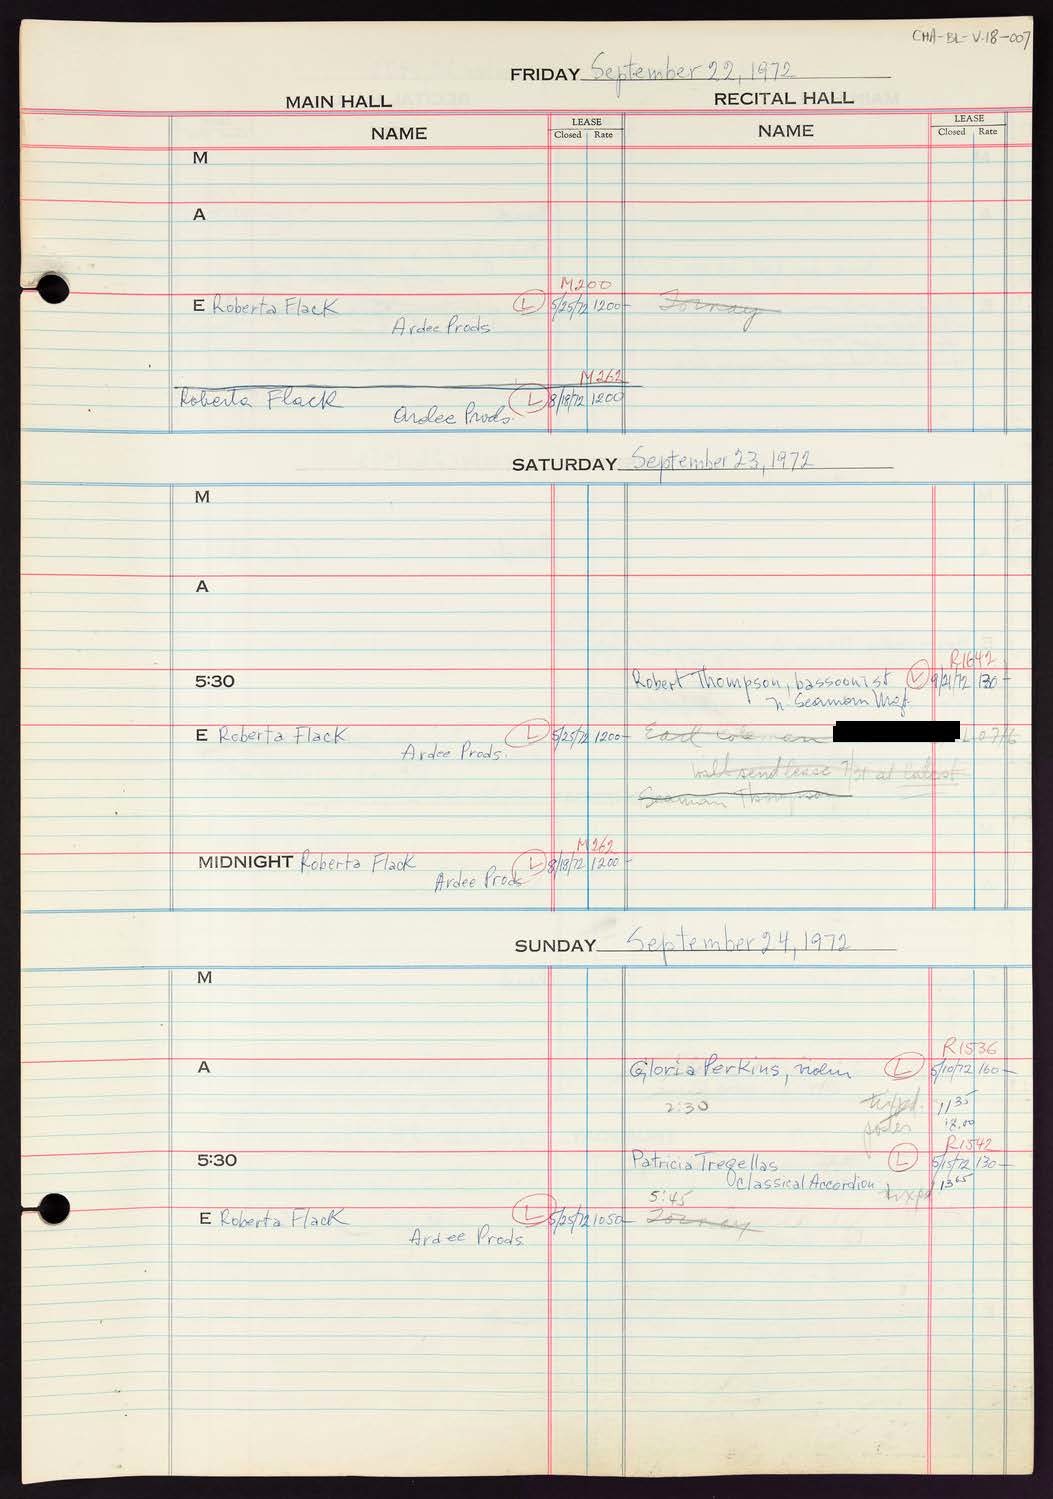 CHA-BL-V.18-007
FRIDAY September 22, 1972
MAIN HALL RECITAL HALL
NAME LEASE NAME LEASE
Closed Rate Closed Rate
M
A
M200
E Roberta Flack L 5/25/72 1200- Tornay
Ardee Prods
M262
Roberta Flack L 8/18/72 1200
Ardee Prods.
SATURDAY September 23, 1972
M
A
R1642
5:30 Robert Thompson, bassoonist L 9/21/72 130-
n. Seaman Mgt.
E Roberta Flack L 5/25/72 1200- Earl Coleman
Ardee Prods.
will send lease 7/31 at latest
Seaman Thompson
M262
MIDNIGHT Roberta Flack L 8/18/72 1200-
Ardee Prods
SUNDAY September 24, 1972
M
R1536
A Gloria Perkins, violin L 5/10/72 160-
2:30 11 35
18.00
R1542
5:30 Patricia Tregellas L 5/15/72 130-
Classical Accordion 13 65
5:45
E Roberta Flack L 5/25/72 1050- Tornay
Ardee Prods